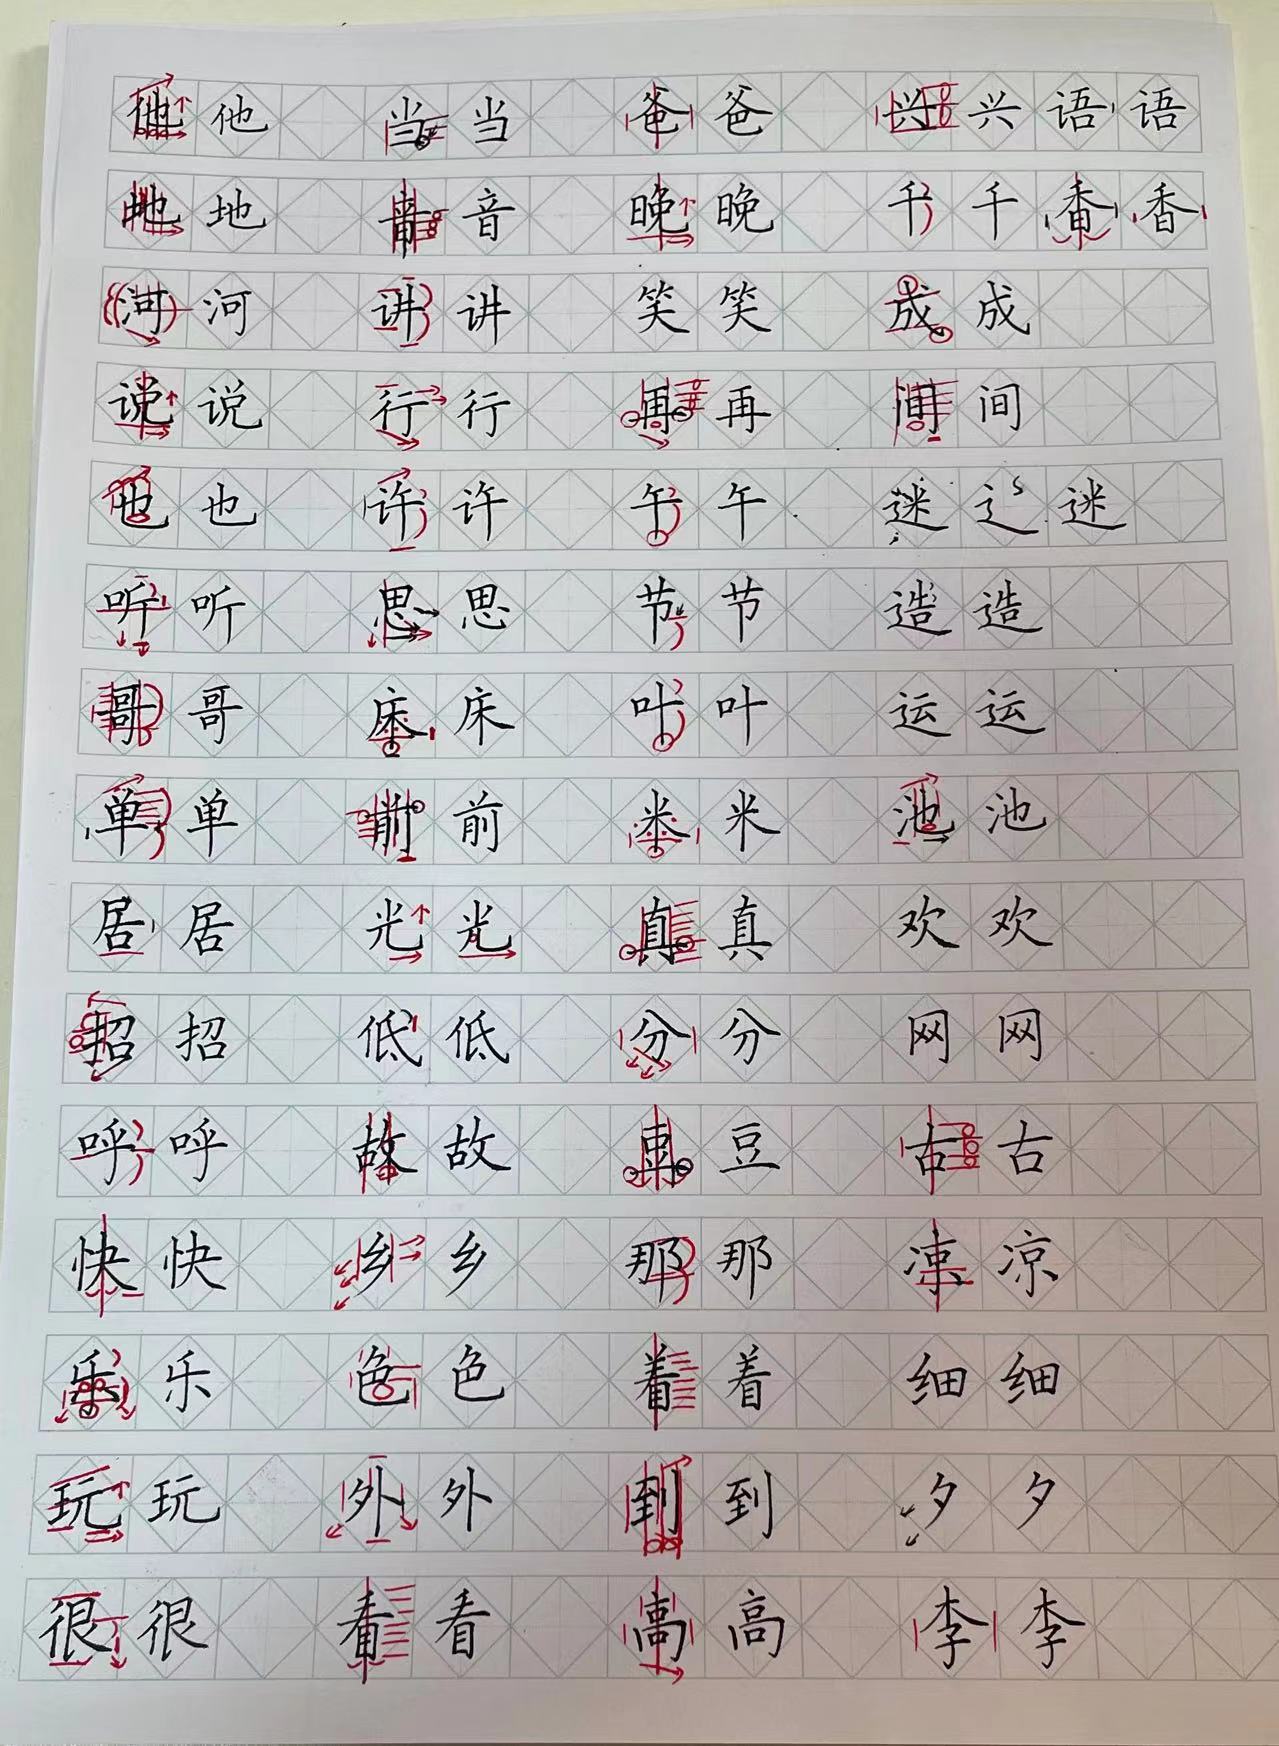 他他 当当 爸爸 兴兴语语
地地 音音 晚晚 千千香香
河河 讲讲 笑笑 成成
说说 行行 再再 间间
也也 许许 午午 迷辶迷
听听 思思 节节 造造
哥哥 床床 叶叶 运运
单单 前前 米米 池池
居居 光光 真真 欢欢
招招 低低 分分 网网
呼呼 故故 豆豆 古古
快快 乡乡 那那 凉凉
乐乐 色色 着着 细细
玩玩 外外 到到 夕夕
很很 看看 高高 李李